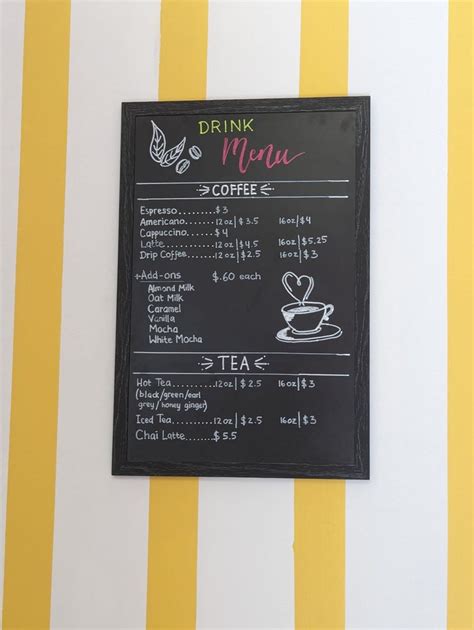 DRINK
Menu
COFFEE
Espresso........$3
Americano.......12oz|$3.5 16oz|$4
Cappuccino......$4
Latte...........12oz|$4.5 16oz|$5.25
Drip Coffee.....12oz|$2.5 16oz|$3
+Add-ons $.60 each
Almond Milk
Oat Milk
Caramel
Vanilla
Mocha
White Mocha
TEA
Hot Tea..........12oz|$2.5 16oz|$3
(black/green/earl
grey/honey ginger)
Iced Tea.........12oz|$2.5 16oz|$3
Chai Latte.......$5.5